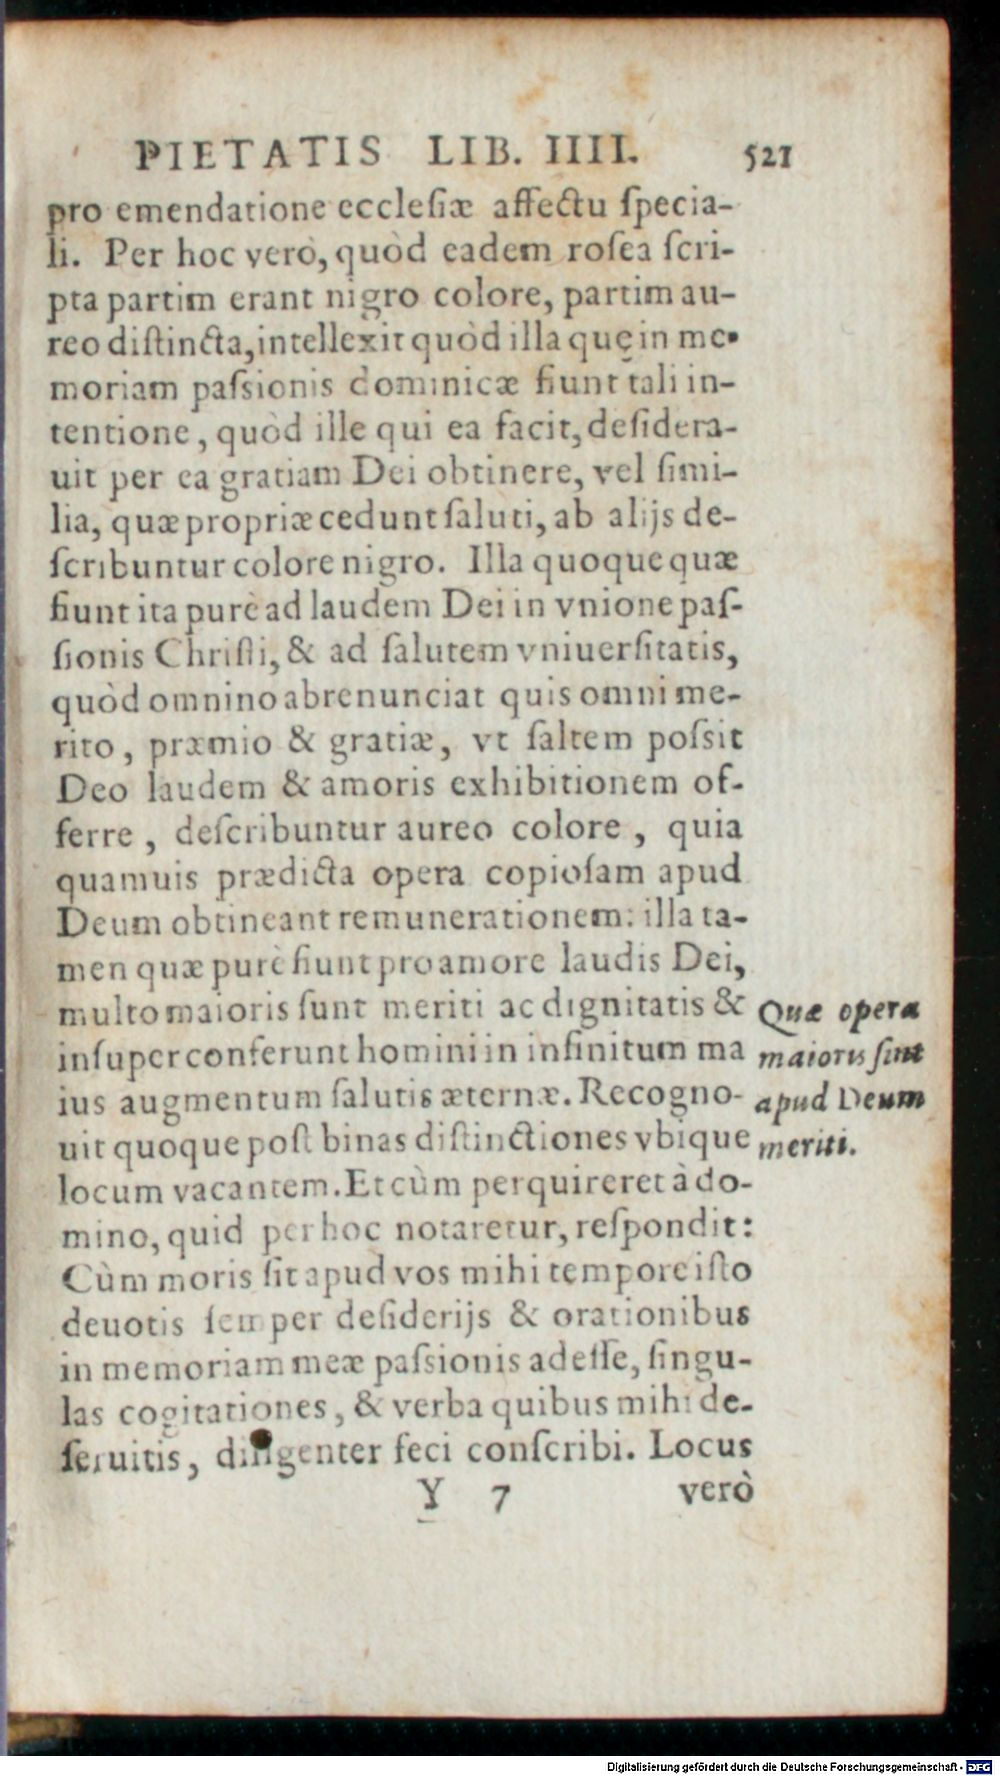 PIETATIS LIB. IIII. 521
pro emendatione ecclesiæ affectu ſpecia-
li. Per hoc verò, quòd eadem roſea ſcri-
pta partim erant nigro colore, partim au-
reo diſtincta, intellexit quòd illa quę in me-
moriam paſsionis dominicæ fiunt tali in-
tentione, quòd ille qui ea facit, deſidera-
uit per ea gratiam Dei obtinere, vel ſimi-
lia, quæ propriæ cedunt ſaluti, ab alijs de-
ſcribuntur colore nigro. Illa quoque quæ
fiunt ita purè ad laudem Dei in vnione paſ-
ſionis Chriſti, & ad ſalutem vniuerſitatis,
quòd omnino abrenunciat quis omni me-
rito, præmio & gratiæ, vt ſaltem poſsit
Deo laudem & amoris exhibitionem of-
ferre, deſcribuntur aureo colore, quia
quamuis prædicta opera copioſam apud
Deum obtineant remunerationem: illa ta-
men quæ purè fiunt pro amore laudis Dei,
multo maioris ſunt meriti ac dignitatis &
inſuper conferunt homini in infinitum ma
ius augmentum ſalutis æternæ. Recogno-
uit quoque poſt binas diſtinctiones vbique
locum vacantem. Et cùm perquireret à do-
mino, quid per hoc notaretur, reſpondit:
Cùm moris ſit apud vos mihi tempore iſto
deuotis ſemper deſiderijs & orationibus
in memoriam meæ paſsionis adeſſe, ſingu-
las cogitationes, & verba quibus mihi de-
ſeruitis, diligenter feci conſcribi. Locus
Y 7 verò
Quæ opera
maioris ſint
apud Deum
meriti.
Digitalisierung gefördert durch die Deutsche Forschungsgemeinschaft - DFG